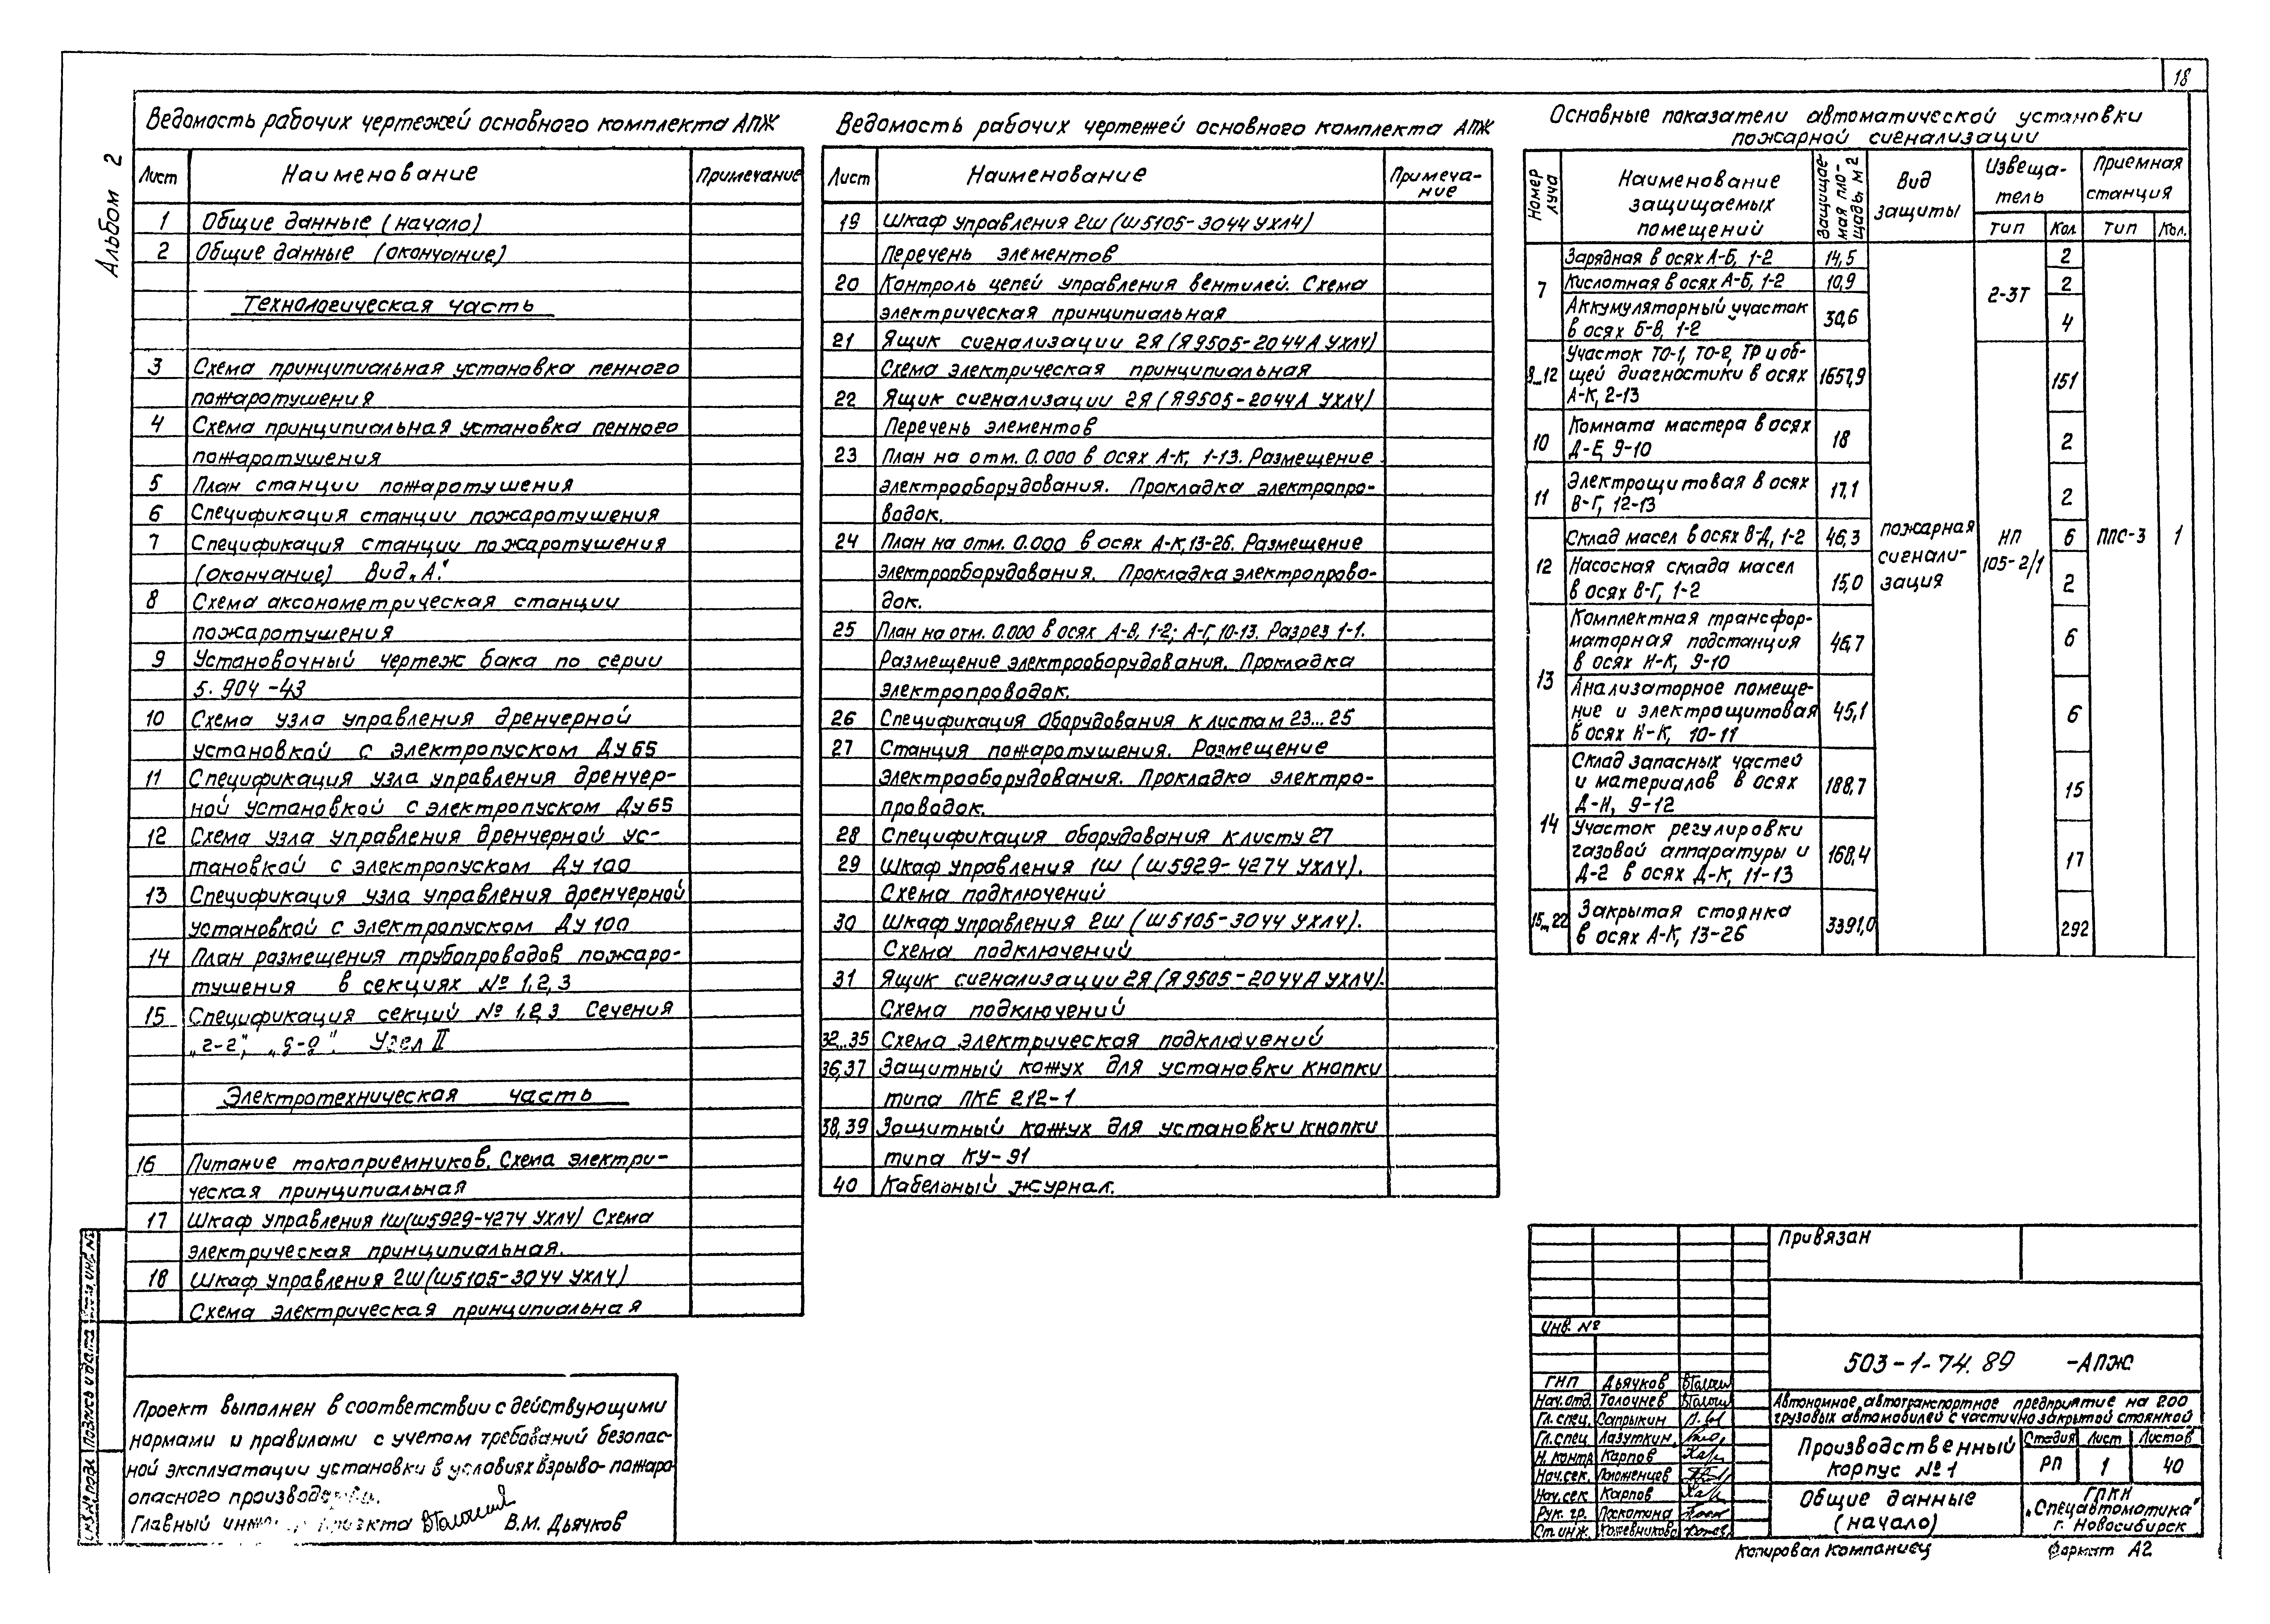 18
Альбом 2
Ведомость рабочих чертежей основного комплекта АПЖ
Лист Наименование Примечание
1 Общие данные (начало)
2 Общие данные (окончание)
Технологическая часть
3 Схема принципиальная установка пенного
пожаротушения
4 Схема принципиальная установка пенного
пожаротушения
5 План станции пожаротушения
6 Спецификация станции пожаротушения
7 Спецификация станции пожаротушения
(окончание) Вид „А".
8 Схема аксонометрическая станции
пожаротушения
9 Установочный чертеж бака по серии
5.904-43
10 Схема узла управления дренчерной
установкой с электропуском Ду 65
11 Спецификация узла управления дренчер-
ной установкой с электропуском Ду 65
12 Схема узла управления дренчерной ус-
тановкой с электропуском Ду 100
13 Спецификация узла управления дренчерной
установкой с электропуском Ду 100
14 План размещения трубопроводов пожаро-
тушения в секциях № 1,2,3
15 Спецификация секций № 1,2,3 Сечения
„г-г", „д-д". Узел II
Электротехническая часть
16 Питание токоприемников. Схема электри-
ческая принципиальная
17 Шкаф управления 1Ш(Ш5929-4274 УХЛ4) Схема
электрическая принципиальная.
18 Шкаф управления 2Ш(Ш5105-3044 УХЛ4)
Схема электрическая принципиальная
Ведомость рабочих чертежей основного комплекта АПЖ
Лист Наименование Примеча-
ние
19 Шкаф управления 2Ш (Ш5105-3044 УХЛ4)
Перечень элементов
20 Контроль цепей управления вентилей. Схема
электрическая принципиальная
21 Ящик сигнализации 2Я (Я9505-2044А УХЛ4)
Схема электрическая принципиальная
22 Ящик сигнализации 2Я (Я9505-2044А УХЛ4)
Перечень элементов
23 План на отм. 0.000 в осях А-К, 1-13. Размещение
электрооборудования. Прокладка электропро-
водок.
24 План на отм. 0.000 в осях А-К, 13-26. Размещение
электрооборудования. Прокладка электропрово-
док.
25 План на отм. 0.000 в осях А-В, 1-2; А-Г, 10-13. Разрез 1-1.
Размещение электрооборудования. Прокладка
электропроводок.
26 Спецификация оборудования к листам 23...25
27 Станция пожаротушения. Размещение
электрооборудования. Прокладка электро-
проводок.
28 Спецификация оборудования к листу 27
29 Шкаф управления 1Ш (Ш5929-4274 УХЛ4).
Схема подключений
30 Шкаф управления 2Ш (Ш5105-3044 УХЛ4).
Схема подключений
31 Ящик сигнализации 2Я (Я9505-2044А УХЛ4).
Схема подключений
32...35 Схема электрическая подключений
36,37 Защитный кожух для установки кнопки
типа ПКЕ 212-1
38,39 Защитный кожух для установки кнопки
типа КУ-91
40 Кабельный журнал.
Основные показатели автоматической установки
пожарной сигнализации
Номер луча
Наименование защищаемых помещений
Защищае-мая пло-щадь, м2
Вид защиты
Извеща-тель
Приемная станция
тип Кол. тип Кол.
7 Зарядная в осях А-Б, 1-2 14,5 2
Кислотная в осях А-Б, 1-2 10,9 2-ЗТ 2
Аккумуляторный участок
в осях Б-В, 1-2 30,6 4
9...12 Участок ТО-1, ТО-2, ТР и об-
щей диагностики в осях 1657,9 151
А-К, 2-13
10 Комната мастера в осях
Д-Е, 9-10 18 2
11 Электрощитовая в осях
В-Г, 12-13 17,1 2
12 Склад масел в осях В-Д, 1-2 46,3 6
Насосная склада масел
в осях В-Г, 1-2 15,0 2
пожарная сигнали-зация
ИП 105-2/1
ППС-3 1
13 Комплектная трансфор-
маторная подстанция 46,7 6
в осях И-К, 9-10
Анализаторное помеще-
ние и электрощитовая 45,1 6
в осях И-К, 10-11
14 Склад запасных частей
и материалов в осях 188,7 15
Д-И, 9-12
Участок регулировки
газовой аппаратуры и 168,4 17
Д-2 в осях Д-К, 11-13
15...22 Закрытая стоянка
в осях А-К, 13-26 3391,0 292
Проект выполнен в соответствии с действующими
нормами и правилами с учетом требований безопас-
ной эксплуатации установки в условиях взрыво-пожаро
опасного производства.
Главный проекта В.М. Дьячков
Инв. № подл. Подпись и дата Взам. инв. №
Привязан
Инв. №
503-1-74.89 -АПЖ
ГИП Дьячков
Нач. отд. Толочнев
Гл. спец. Сапрыкин
Гл. спец. Лазуткин
Н. контр. Карпов
Нач. сек.
Нач. сек. Карпов
Рук. гр.
Ст. инж. Кожевникова
Автономное автотранспортное предприятие на 200
грузовых автомобилей с частично закрытой стоянкой
Производственный
корпус № 1
Стадия Лист Листов
РП 1 40
Общие данные
(начало)
ГПКИ
„Спецавтоматика"
г. Новосибирск
Копировал Компаниец Формат А2